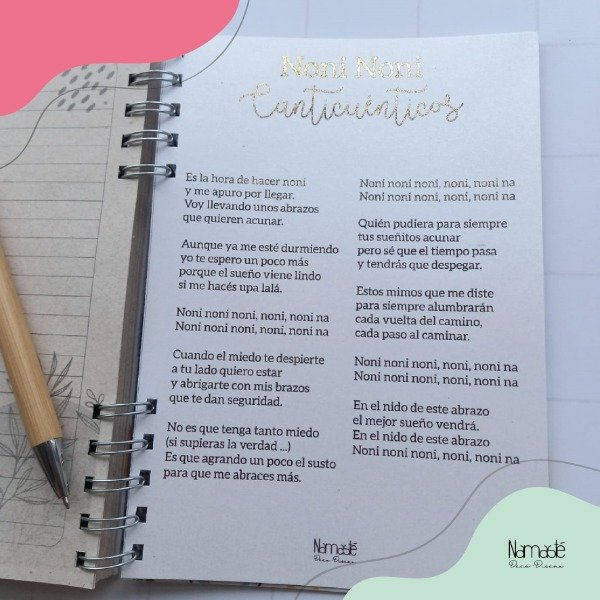 Noni Noni
Canticuénticos
Es la hora de hacer noni
y me apuro por llegar.
Voy llevando unos abrazos
que quieren acunar.
Aunque ya me esté durmiendo
yo te espero un poco más
porque el sueño viene lindo
si me hacés upa lalá.
Noni noni noni, noni, noni na
Noni noni noni, noni, noni na
Cuando el miedo te despierte
a tu lado quiero estar
y abrigarte con mis brazos
que te dan seguridad.
No es que tenga tanto miedo
(si supieras la verdad ...)
Es que agrando un poco el susto
para que me abraces más.
Noni noni noni, noni, noni na
Noni noni noni, noni, noni na
Quién pudiera para siempre
tus sueñitos acunar
pero sé que el tiempo pasa
y tendrás que despegar.
Estos mimos que me diste
para siempre alumbrarán
cada vuelta del camino,
cada paso al caminar.
Noni noni noni, noni, noni na
Noni noni noni, noni, noni na
En el nido de este abrazo
el mejor sueño vendrá.
En el nido de este abrazo
Noni noni noni, noni, noni na
Namasté
Deco Diseño
Namasté
Deco Diseño